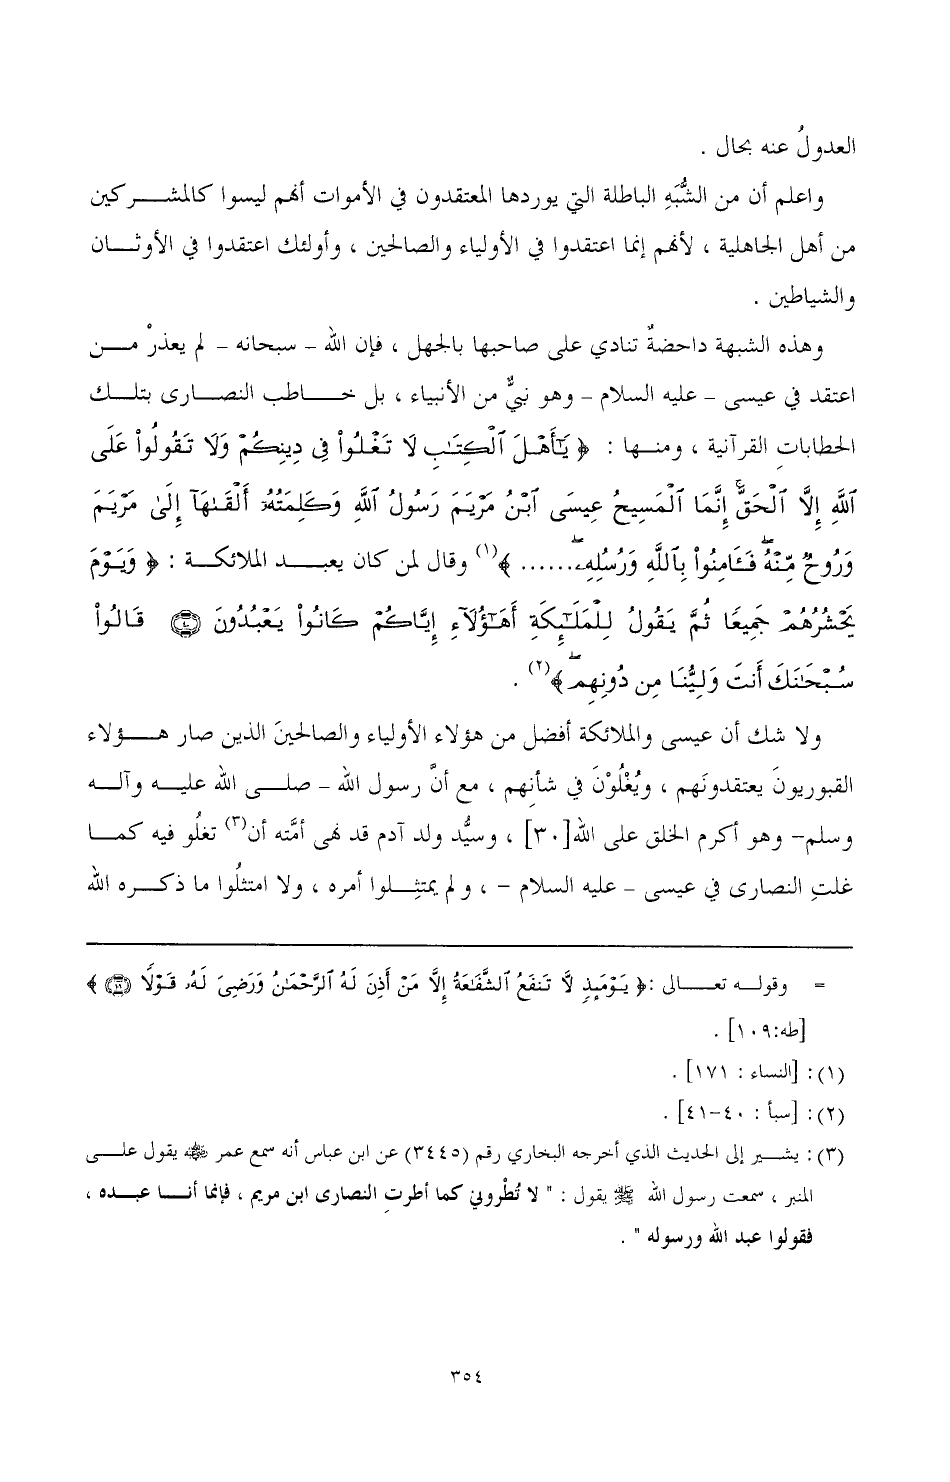 العدولُ عنه بحال .
واعلم أن من الشُّبَهِ الباطلة التي يوردها المعتقدون في الأموات أنهم ليسوا كالمشركين
من أهل الجاهلية ، لأنهم إنما اعتقدوا في الأولياء والصالحين ، وأولئك اعتقدوا في الأوثان
والشياطين .
وهذه الشبهة داحضةٌ تنادي على صاحبها بالجهل ، فإن الله – سبحانه – لم يعذرْ من
اعتقد في عيسى – عليه السلام – وهو نبيٌّ من الأنبياء ، بل خاطب النصارى بتلك
الخطابات القرآنية ، ومنها : ﴿ يَـٰٓأَهْلَ ٱلْكِتَـٰبِ لَا تَغْلُوا۟ فِى دِينِكُمْ وَلَا تَقُولُوا۟ عَلَى
ٱللَّهِ إِلَّا ٱلْحَقَّ ۚ إِنَّمَا ٱلْمَسِيحُ عِيسَى ٱبْنُ مَرْيَمَ رَسُولُ ٱللَّهِ وَكَلِمَتُهُۥٓ أَلْقَىٰهَآ إِلَىٰ مَرْيَمَ
وَرُوحٌ مِّنْهُ ۖ فَـَٔامِنُوا۟ بِٱللَّهِ وَرُسُلِهِۦ ۖ...... ﴾(١) وقال لمن كان يعبد الملائكة : ﴿ وَيَوْمَ
يَحْشُرُهُمْ جَمِيعًا ثُمَّ يَقُولُ لِلْمَلَـٰٓئِكَةِ أَهَـٰٓؤُلَآءِ إِيَّاكُمْ كَانُوا۟ يَعْبُدُونَ ۝٤٠ قَالُوا۟
سُبْحَـٰنَكَ أَنتَ وَلِيُّنَا مِن دُونِهِم ۖ ﴾(٢) .
ولا شك أن عيسى والملائكة أفضل من هؤلاء الأولياء والصالحينَ الذين صار هؤلاء
القبوريونَ يعتقدونَهم ، ويُغْلُوْنَ في شأنهم ، مع أنَّ رسول الله – صلى الله عليه وآله
وسلم– وهو أكرم الخلق على الله[٣٠] ، وسيُّد ولد آدم قد نهى أمَّته أن(٣) تغلُو فيه كما
غلتِ النصارى في عيسى – عليه السلام – ، و لم يمتثِلوا أمره ، ولا امتثلُوا ما ذكره الله
= وقوله تعالى :﴿ يَوْمَئِذٍ لَّا تَنفَعُ ٱلشَّفَـٰعَةُ إِلَّا مَنْ أَذِنَ لَهُ ٱلرَّحْمَـٰنُ وَرَضِىَ لَهُۥ قَوْلًا ۝١٠٩ ﴾
[طه:١٠٩] .
(١): [النساء : ١٧١] .
(٢): [سبأ : ٤٠-٤١] .
(٣): يشير إلى الحديث الذي أخرجه البخاري رقم (٣٤٤٥) عن ابن عباس أنه سمع عمر رضي الله عنه يقول على
المنبر ، سمعت رسول الله ﷺ يقول : " لا تُطْروني كما أطرتِ النصارى ابن مريم ، فإنما أنا عبده ،
فقولوا عبد الله ورسوله " .
٣٥٤